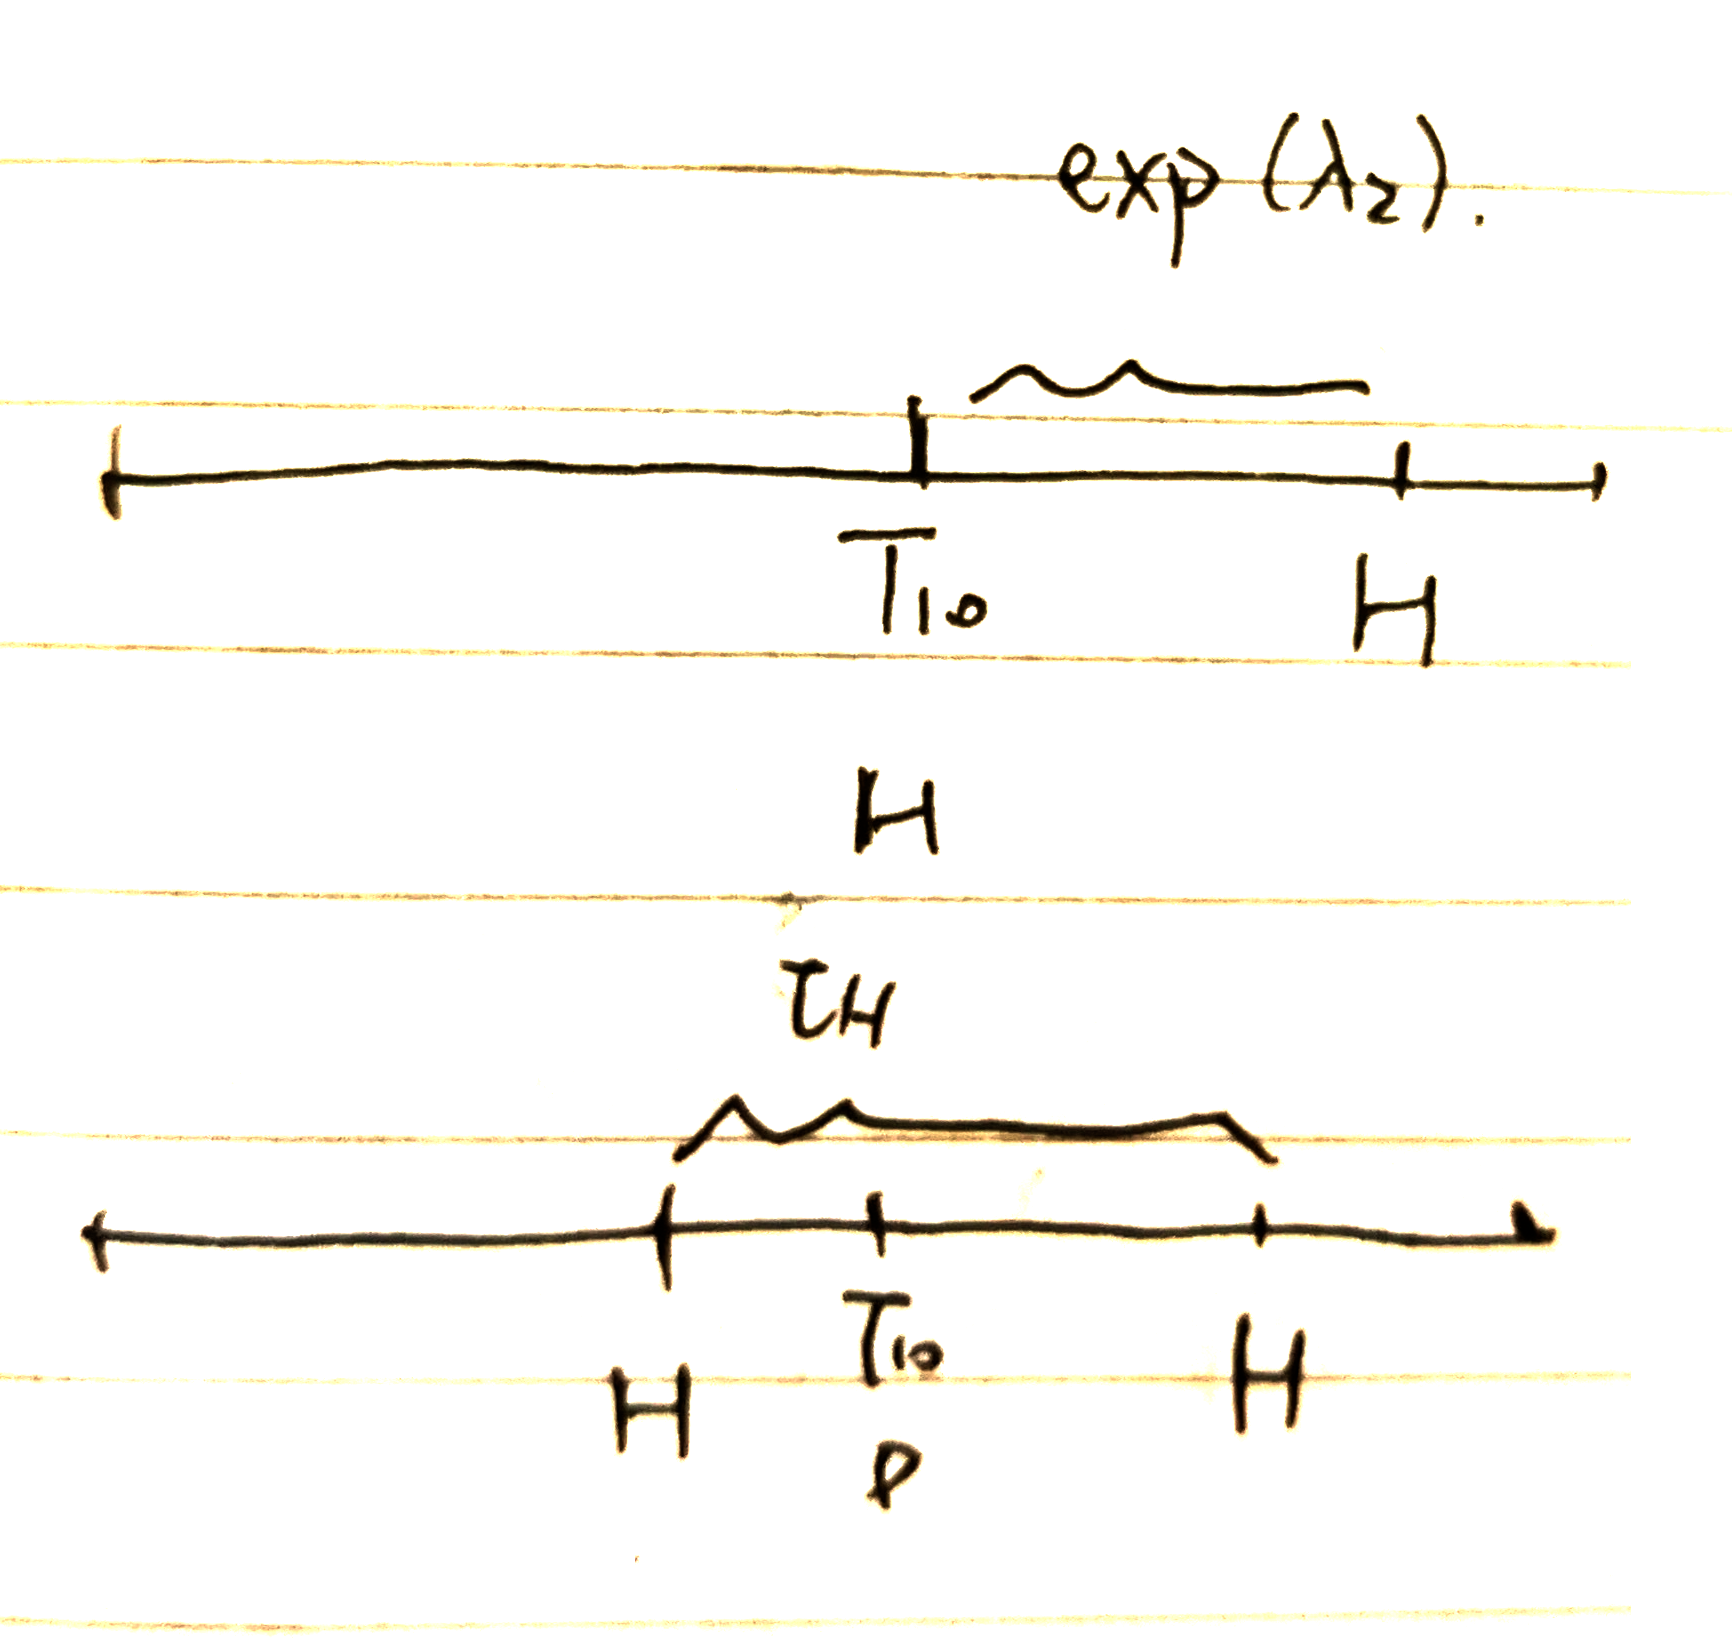 exp (λ₂).
T₁₀ H
H
τH
T₁₀
H H
P